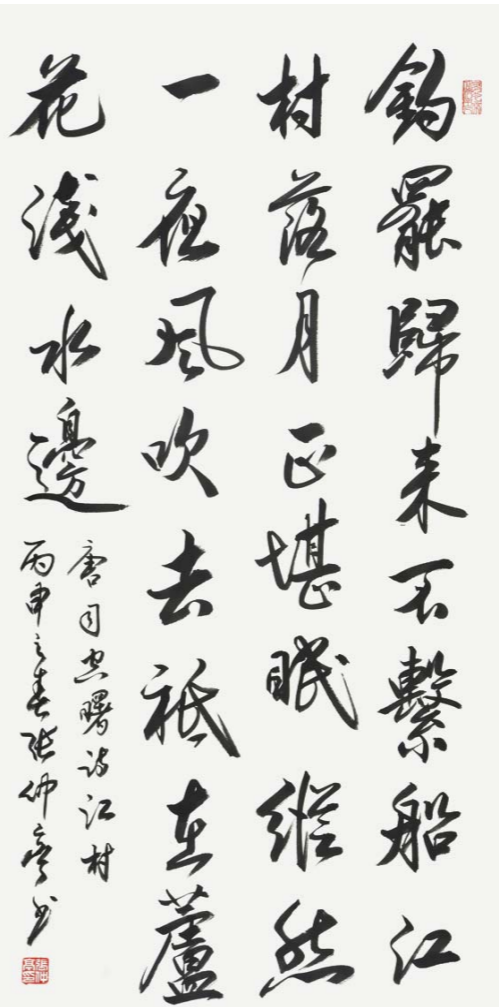 釣罷歸来不繫船江
村落月正堪眠縱然
一夜風吹去祗在蘆
花淺水邊
唐司空曙詩江村
丙申之春張仲亭书